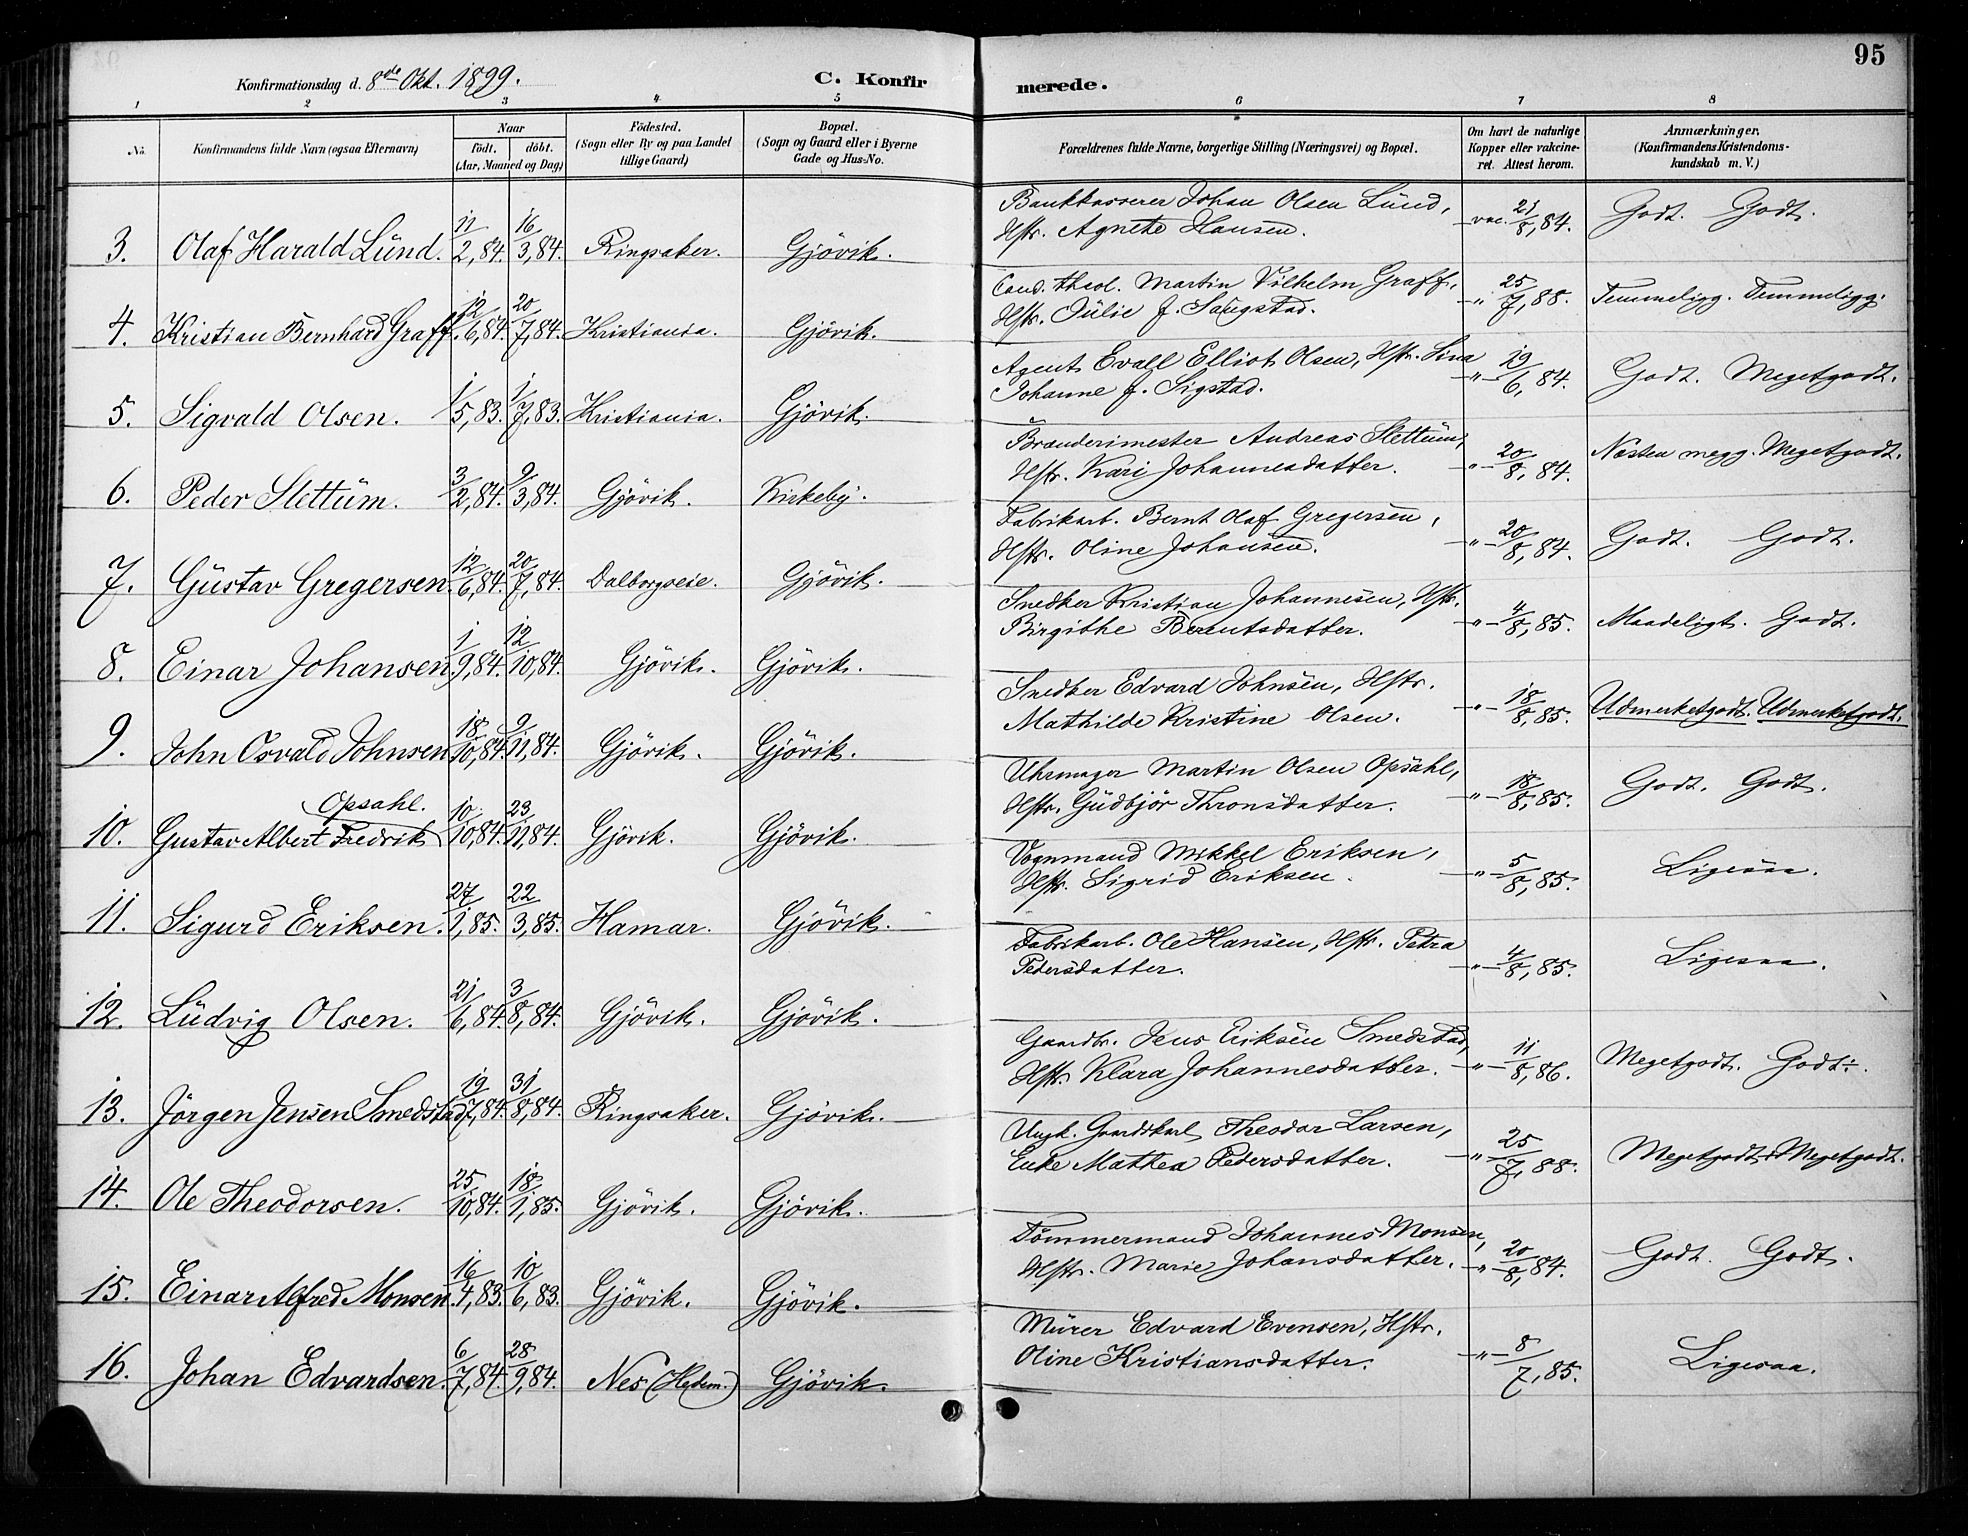 95
Konfirmationsdag d. 8de Okt. 1899. C. Konfirmerede.
1 2 3 4 5 6 7 8
No. Konfirmandens fulde Navn (ogsaa Efternavn) Naar født. døbt. (Aar, Maaned og Dag) Födested. (Sogn eller By og paa Landet tillige Gaard) Bopæl. (Sogn og Gaard eller i Byerne Gade og Hus-No. Forældrenes fulde Navne, borgerlige Stilling (Næringsvei) og Bopæl. Om havt de naturlige Kopper eller vakcineret. Attest herom. Anmærkninger. (Konfirmandens Kristendomskundskab m. V.)
3. Olaf Harald Lund. 11/2,84. 16/3,84. Ringsaker. Gjövik. Bankkasserer Johan Olsen Lund,
Hstr. Agnete Hansen. vac. 21/8,84. Godt. Godt.
4. Kristian Bernhard Graff. 12/6,84. 20/7,84. Kristiania. Gjövik. Cand. theol. Martin Vilhelm Graff,
Hstr. Julie f. Saugstad. -"- 25/7,88. Temmeligg. Temmeligg.
5. Sigvald Olsen. 1/5,83. 1/7,83. Kristiania. Gjövik. Agent Evall Elliot Olsen, Hstr. Lina
Johanne f. Sigstad. -"- 19/6,84. Godt. Megetgodt.
6. Peder Slettum. 3/2,84. 9/3,84. Gjövik. Kirkeby. Brænderimester Andreas Slettum,
Hstr. Kari Johannesdatter. -"- 20/8,84. Næsten megg. Megetgodt.
7. Gustav Gregersen. 12/6,84. 20/7,84. Dalborgseie. Gjövik. Fabrikarb. Bernt Olaf Gregersen,
Hstr. Oline Johansen. -"- 20/8,84. Godt. Godt.
8. Einar Johansen. 1/9,84. 12/10,84. Gjövik. Gjövik. Snedker Kristian Johannesen, Hstr.
Birgithe Berentsdatter. -"- 4/8,85. Maadeligt. Godt.
9. John Osvald Johnsen 18/10,84. 9/11,84. Gjövik. Gjövik. Snedker Edvard Johnsen, Hstr.
Mathilde Kristine Olsen. -"- 18/8,85. Udmerketgodt. Udmerketgodt.
Opsahl.
10. Gustav Albert Fredrik 10/10,84. 23/11,84. Gjövik. Gjövik. Uhrmager Martin Olsen Opsahl,
Hstr. Gudbjör Thronsdatter. -"- 18/8,85. Godt. Godt.
11. Sigurd Eriksen. 27/1,85. 22/3,85. Hamar. Gjövik. Vognmand Mikkel Eriksen,
Hstr. Sigrid Eriksen. -"- 5/8,85. Ligesaa.
12. Ludvig Olsen. 21/6,84. 3/8,84. Gjövik. Gjövik. Fabrikarb. Ole Hansen, Hstr. Petra
Pedersdatter. -"- 4/8,85. Ligesaa.
13. Jörgen Jensen Smedstad 19/7,84. 31/8,84. Ringsaker. Gjövik. Gaardbr. Jens Eriksen Smedstad,
Hstr. Klara Johannesdatter. -"- 11/8,86. Megetgodt. Godt÷.
14. Ole Theodorsen. 25/10,84. 18/1,85. Gjövik. Gjövik. Ungk. Gaardskarl Theodor Larsen,
Enke Mathea Pedersdatter. -"- 25/7,88. Megetgodt. Megetgodt.
15. Einar Alfred Monsen. 16/4,83. 10/6,83. Gjövik. Gjövik. Tömmermand Johannes Monsen,
Hstr. Marie Johansdatter. -"- 20/8,84. Godt. Godt.
16. Johan Edvardsen. 6/7,84. 28/9,84. Nes (Hedem.) Gjövik. Murer Edvard Evensen, Hstr.
Oline Kristiansdatter. -"- 8/7,85. Ligesaa.